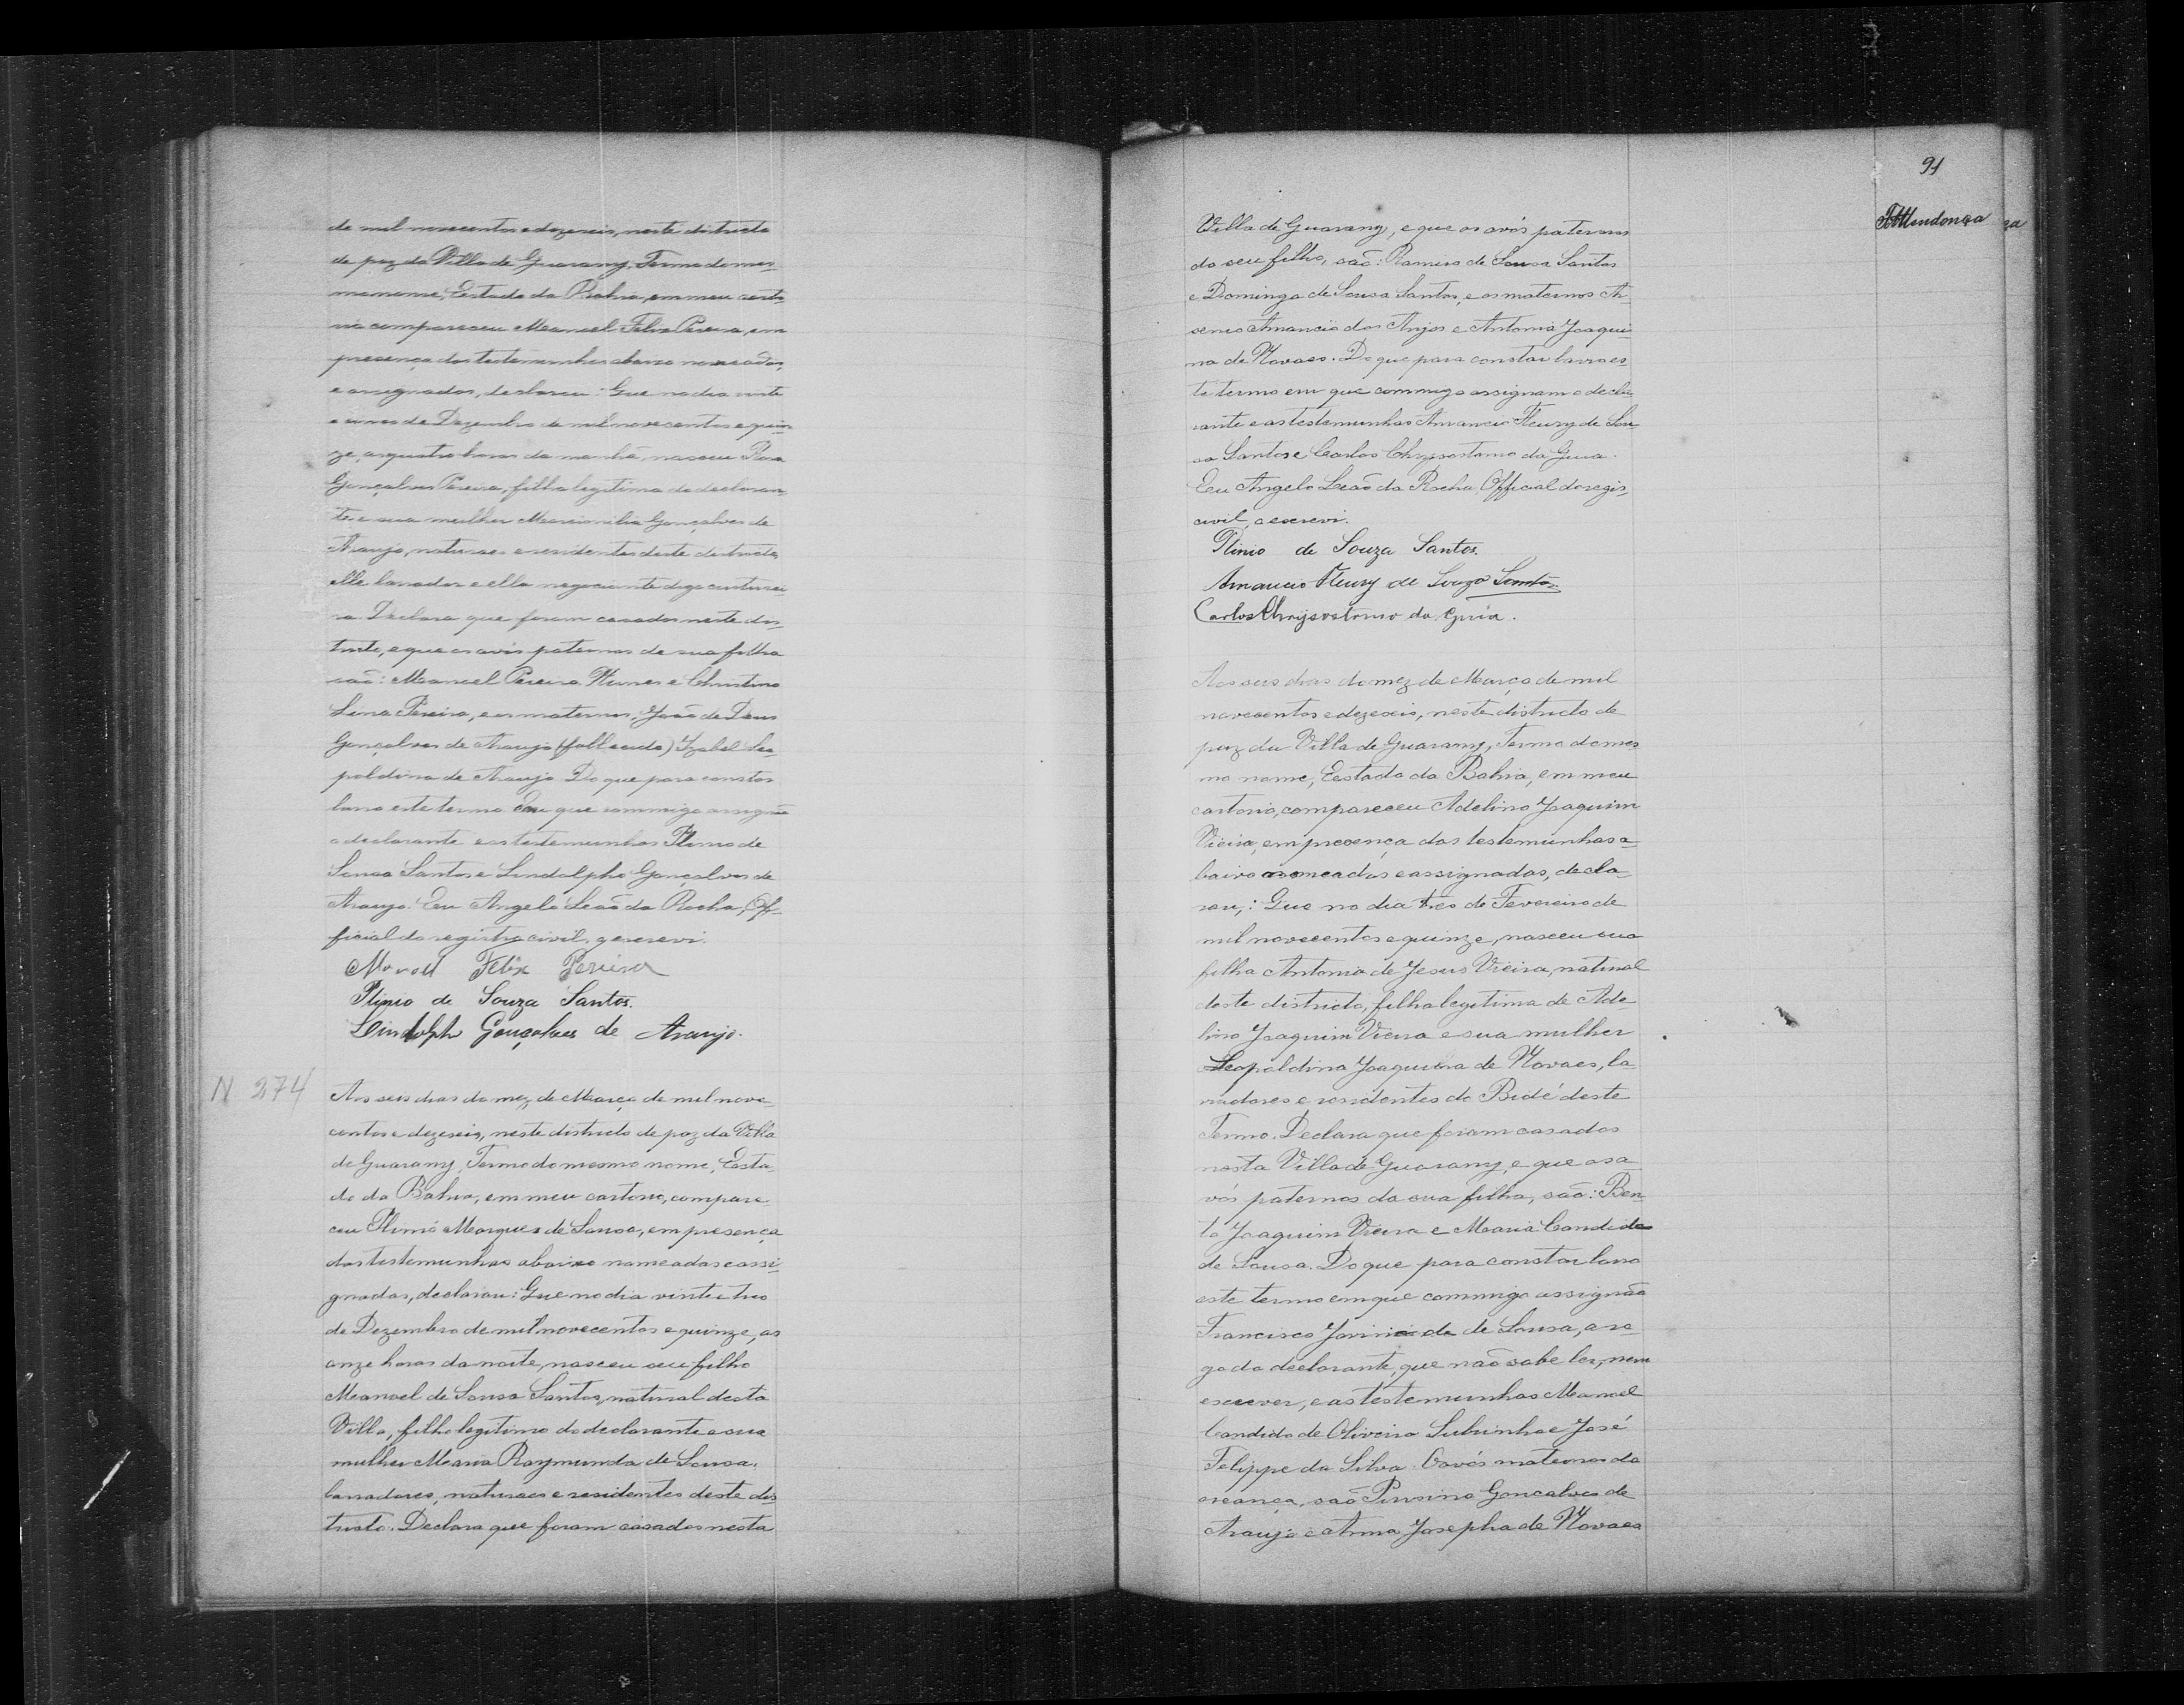 de mil novecentos e dezeseis, neste districto
de paz da Villa de Guarany, Termo do mes-
mo nome, Estado da Bahia, em meu carto-
rio compareceu Manoel Felix Pereira, em
presença das testemunhas abaixo nomeadas,
e assignadas, declarou: Que no dia vinte
e cinco de Dezembro de mil novecentos e quin-
ze, as quatro horas da manhã, nasceu Rosa
Gonçalves Pereira, filha legitima do declaran-
te e sua mulher Marcionilia Gonçalves de
Araujo, naturaes e residentes deste districto,
elle lavrador e ella negociante digo costurei-
ra. Declara que foram casados neste dis-
tricto, e que os avós paternos de sua filha
são: Manoel Pereira Nunes e Christina
Lima Pereira, e os maternos, João de Deus
Gonçalves de Araujo (fallecido) Izabel Leo-
poldina de Araujo. Do que para constar
lavro este termo em que commigo assignão
o declarante e as testemunhas Plinio de
Sousa Santos e Lindolpho Gonçalves de
Araujo. Eu Angelo Leão da Rocha, Of-
ficial do registro civil, o escrevi.
Manoel Felix Pereira
Plinio de Souza Santos.
Lindolpho Gonçalves de Araujo.
N 274
Aos seis dias do mez de Março de mil nove-
centos e dezeseis, neste districto de paz da Villa
de Guarany, Termo do mesmo nome, Esta-
do da Bahia, em meu cartorio, compare-
ceu Plinio Marques de Sousa, em presença
das testemunhas abaixo nomeadas e assi-
gnadas, declarou: Que no dia vinte e tres
de Dezembro de mil novecentos e quinze, as
onze horas da noite, nasceu seu filho
Manoel de Sousa Santos, natural desta
Villa, filho legitimo do declarante e sua
mulher Maria Raymunda de Sousa,
lavradores, naturaes e residentes deste dis-
tricto. Declara que foram casados nesta
91
Mendonça
Villa de Guarany, e que os avós paternos
do seu filho, são: Ramiro de Sousa Santos
e Dominga de Sousa Santos, e os maternos Ar-
senio Amancio dos Anjos e Antonia Joaqui-
na de Novaes. Do que para constar lavro es-
te termo em que commigo assignam o decla-
rante e as testemunhas Amancio Fleury de Sou-
sa Santos e Carlos Chrysostomo da Guia.
Eu Angelo Leão da Rocha, Official do regis,
civil, o escrevi.
Plinio de Souza Santos.
Amancio Fleury de Souza Santos
Carlos Chrysostomo da Guia.
Aos seis dias do mez de Março de mil
novecentos e dezeseis, neste districto de
paz da Villa de Guarany, Termo do mes-
mo nome, Estado da Bahia, em meu
cartorio, compareceu Adelino Joaquim
Vieira, em presença das testemunhas a-
baixo nomeadas e assignadas, decla-
rou,: Que no dia tres de Fevereiro de
mil novecentos e quinze, nasceu sua
filha Antonia de Jesus Vieira, natural
deste districto, filha legitima de Ade-
lino Joaquim Vieira e sua mulher
Leopoldina Joaquina de Novaes, la-
vradores e residentes do Bidé deste
Termo. Declara que foram casados
nesta Villa de Guarany, e que os a-
vós paternos da sua filha, são: Ben-
to Joaquim Vieira e Maria Candida
de Sousa. Do que para constar lavro
este termo em que commigo assignão
Francisco de Sousa, a ro-
go do declarante, que não sabe ler, nem
escrever, e as testemunhas Manoel
Candido de Oliveira Subrinho e José
Felippe da Silva. Os avós maternos da
creança, são Gonçalves de
Araujo e Anna Josepha de Novaes